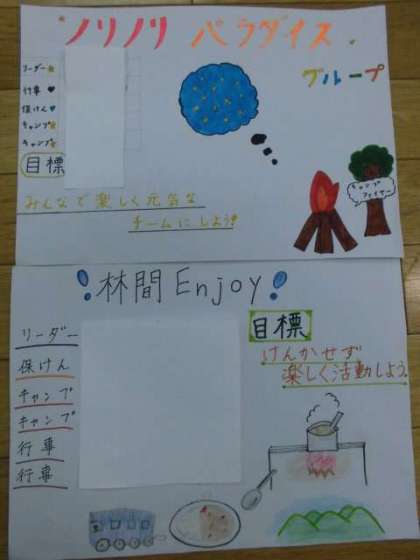 ノリノリ パラダイス
グループ
リーダー
行事
保けん
キャンプ
キャンプ
目標
みんなで楽しく元気な
チームにしよう!
キャンプ
ファイヤー
!林間Enjoy!
リーダー
保けん
キャンプ
キャンプ
行事
行事
目標
けんかせず
楽しく活動しよう